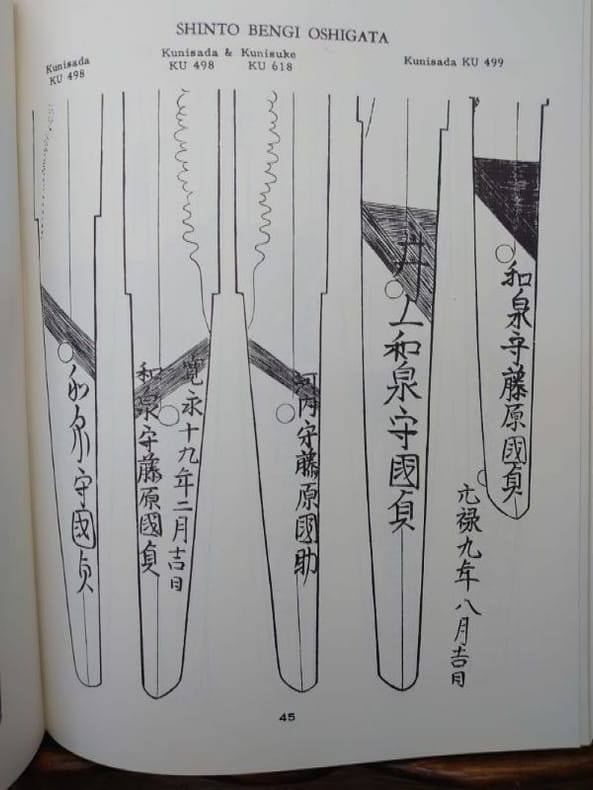 SHINTO BENGI OSHIGATA
Kunisada
KU 498
Kunisada & Kunisuke
KU 498 KU 618
Kunisada KU 499
和泉守國貞
和泉守藤原國貞
寛永十九年二月吉日
河内守藤原國助
井上和泉守國貞
和泉守藤原國貞
元禄九年八月吉日
45